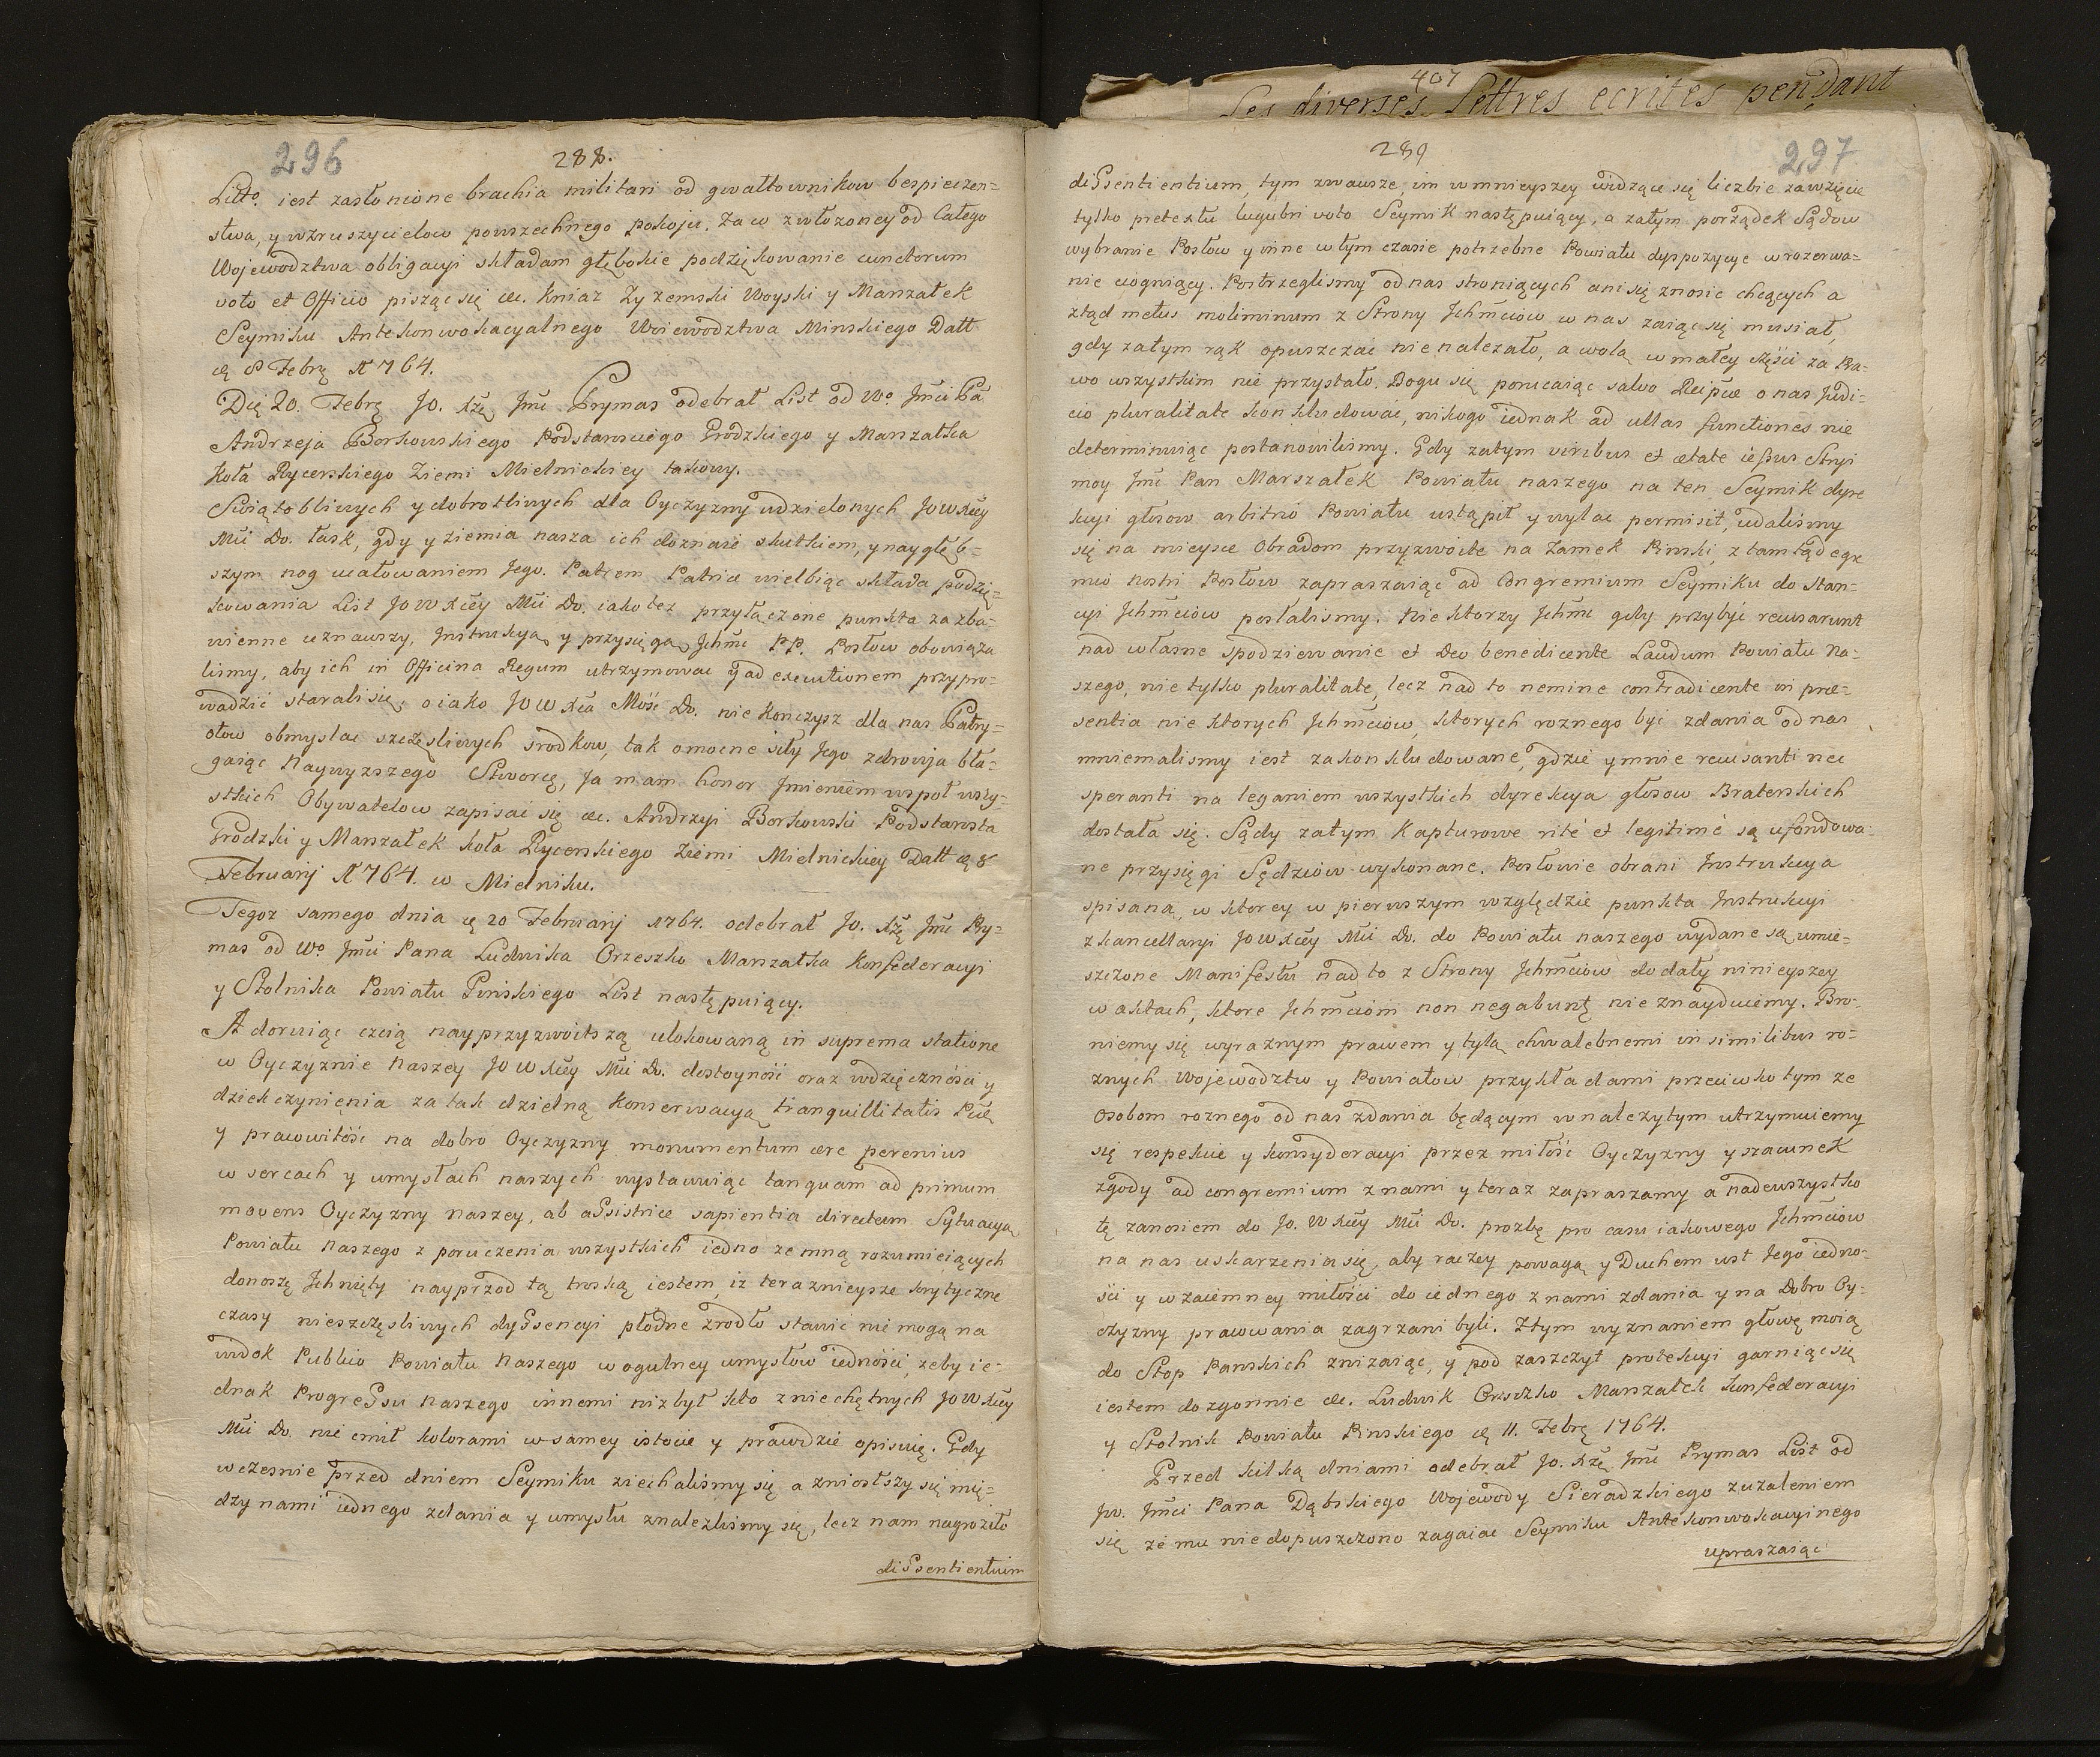 296
288.
Litto. iest zasłonione brachia militari od gwałtownikow bespieczen=
stwa, y wzruszycielow powszechnego pokoju. Za co z włozoney od Całego
Wojewodztwa obligacyi składam głębokie podziękowanie cunctorum
voto et Officio pisząc się &c. Kniaz Zyzemski Woyski y Marszałek
Seymiku Antekonwokacyalnego Woiewodztwa Minskiego Datt
8 Febrę 1764.
Dię 20. Febrę Jo. Xżę Jmć Prymas odebrał List od Wo. Jmci Pa
Andrzeja Borkowskiego Podstarosciego Grodzkiego y Marszałka
Koła Rycerskiego Ziemi Mielnickiey takowy.
Swiątobliwych y dobrotliwych dla Oyczyzny udzielonych JOWXcey
Mci Do. łask, gdy y ziemia nasza ich doznaie skutkiem, y naygłęb=
szym nog ucałowaniem Jego. Patrem Patriæ wielbiąc składa podzię=
kowania List JOWXcey Mci Do. iako tez przyłączone punkta za zba=
wienne uznawszy, Instrukcyą y przysięgą Jchmc PP. Posłow obowiąza
lismy, aby ich in Officina Regum utrzymować y ad executionem przypro=
wadzić staralisię, o iako JOWXca Mość Do. nie Konczysz dla nas Patry=
otow obmyslac szczęsliwych srodkow, tak o mocne siły Jego zdrowja bła=
gaiąc Naywyzszego Stworcę, Ja mam honor Jmieniem wspoł wszy=
stkich Obywatelow zapisać się &c. Andrzyi Borkowski Podstarosta
Grodzki y Marszałek koła Rycerskiego Ziemi Mielnickiey Datt 8
Februarij 1764. w Mielniku.
Tegoz samego dnia 20 Februarij 1764. odebrał Jo. Xżę Jmć Pry=
mas od Wo. Jmci Pana Ludwika Orzeszko Marszałka Konfederacyi
y Stolnika Powiatu Pinskiego List następuiący.
Adoruiąc czcią nayprzyzwoitszą ulokowaną in suprema statione
w Oyczyznie Naszey JOWXcey Mci Do. dostoyność oraz wdzięczności y
dziekczynienia za tak dzielną Konserwacyą tranquillitatis Pcæ
y pracowitość na dobro Oyczyzny monumentum ære perenius
w sercach y umysłach naszych wystawuiąc tanquam ad primum
movens Oyczyzny naszey, ab assistrice sapientia directum Sytuacyą
Powiatu Naszego z poruczenia wszystkich iedno ze mną rozumieiących
donoszę Jchnięty nayprzod tą troską iestem, iz teraznieysze krytyczne
czasy nieszczęsliwych dyssencyi płodne zrodło stawic nie mogą na
widok Publico Powiatu Naszego w ogulney umysłow iedności, zeby ie=
dnak Progressu Naszego innemi niz był kto z niechętnych JOWXcey
Mci Do. nie cmił kolorami w samey istocie y prawdzie opisuię. Gdy
wczesnie przed dniem Seymiku ziechalismy się a zniosłszy się mię=
dzy nami iednego zdania y umysłu znalezlismy się, lecz nam nagroziło
dissentientium
407
Les diverses Lettres ecrites pendant
289
297
dissentientium, tym zwawsze, im w mnieyszey widząc się liczbie zawzięcie
tylko pretextu lugubri voto Seymik następuiący, a zatym porządek Sądow
wybranie Posłow y inne w tym czasie potrzebne Powiatu dyspozycye w rozerwa=
nie ciągnący. Postrzeglismy od nas stroniących ani się znosic chcących a
ztąd metus moliminum z Strony Jchmciow w nas zaiąc się musiał,
gdy zatym rąk opuszczac nie nalezało, a wolą w małey częsci za Pra=
wo wszystkim nie przystało. Bogu się porucaiąc salvo Reipcæ o nas Judi=
cio pluralitate konkludować, nikogo iednak ad ullas functiones nie
determinuiąc postanowilismy. Gdy zatym viribus et ætate iessus Stryi
moy Jmć Pan Marszałek Powiatu naszego na ten Seymik dyre
kcyi głosow arbitrio Powiatu ustąpił y wylac permisit, udalismy
się na mieysce Obradom przyzwoite na Zamek Pinski, z tamtąd egre
mio nostri Posłow zapraszaiąc ad Congremium Seymiku do Stan=
cyi Jchmciow posłalismy. Niektorzy Jchmc gdy przybyć recusarunt
nad własne spodziewanie et Deo benedicente Laudum Powiatu Na=
szego, nie tylko pluralitate, lecz nad to nemine contradicente in præ=
sentia niektorych Jchmciow, ktorych roznego być zdania od nas
mniemalismy iest zakonkludowane, gdzie y mnie recusanti nec
speranti na leganiem wszystkich dyrekcya głosow Braterskich
dostała się. Sądy zatym Kapturowe rité et legitimé są ufondowa=
ne przysięgi Sędziow wykonane. Posłowie obrani Instrukcya
spisana, w ktorey w pierwszym względzie punkta Instrukcyi
z kancellaryi JOWXcey Mci Do. do Powiatu naszego wydane są umie=
szczone Manifestu nad to z Strony Jchmciow do daty ninieyszey
w aktach, ktore Jchmciom non negabunt, nie znayduiemy. Bro=
niemy się wyraznym prawem y tylą chwalebnemi in similibus ro=
znych Wojewodztw y Powiatow przykładami przeciwko tym ze
osobom roznego od nas zdania będącym w nalezytym utrzymuiemy
się respekcie y konsyderacyi przez miłość Oyczyzny y szacunek
zgody ad congremium z nami y teraz zapraszamy a nadewszystko
tę zanosiem do Jo. WXcey Mci Do. prozbę pro casu iakowego Jchmciow
na nas uskarzenia się, aby raczey powagą y Duchem ust Jego iedno=
ści y wzaiemney miłości do iednego z nami zdania y na Dobro Oy=
czyzny pracowania zagrzani byli. Z tym wyznaniem głowę moią
do Stop Panskich znizaiąc, y pod zaszczyt protekcyi garniąc się
iestem dozgonnie &c. Ludwik Orzeszko Marszałek Konfederacyi
y Stolnik Powiatu Pinskiego 11. Febrę 1764.
Przed kilką dniami odebrał Jo. Xżę Jmć Prymas List od
Jw. Jmci Pana Dąbskiego Wojewody Sieradzkiego z uzaleniem
się ze mu niedopuszczono zagaiac Seymiku Antekonwokacyinego
upraszaiąc